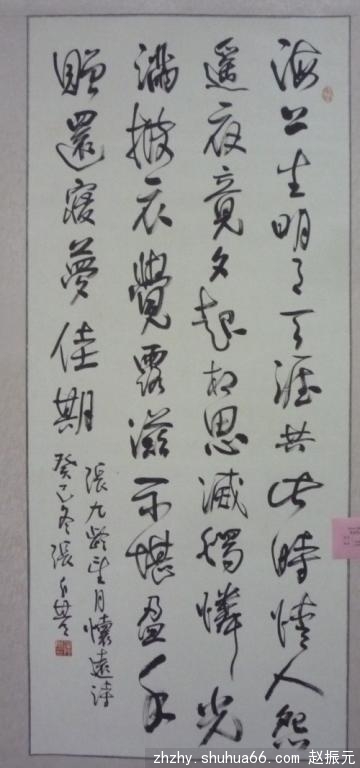 海上生明月天涯共此時情人怨
遙夜竟夕起相思滅燭憐光
滿披衣覺露滋不堪盈手
贈還寢夢佳期
張九齡望月懷遠詩
癸巳冬張
zhzhy.shuhua66.com 赵振元